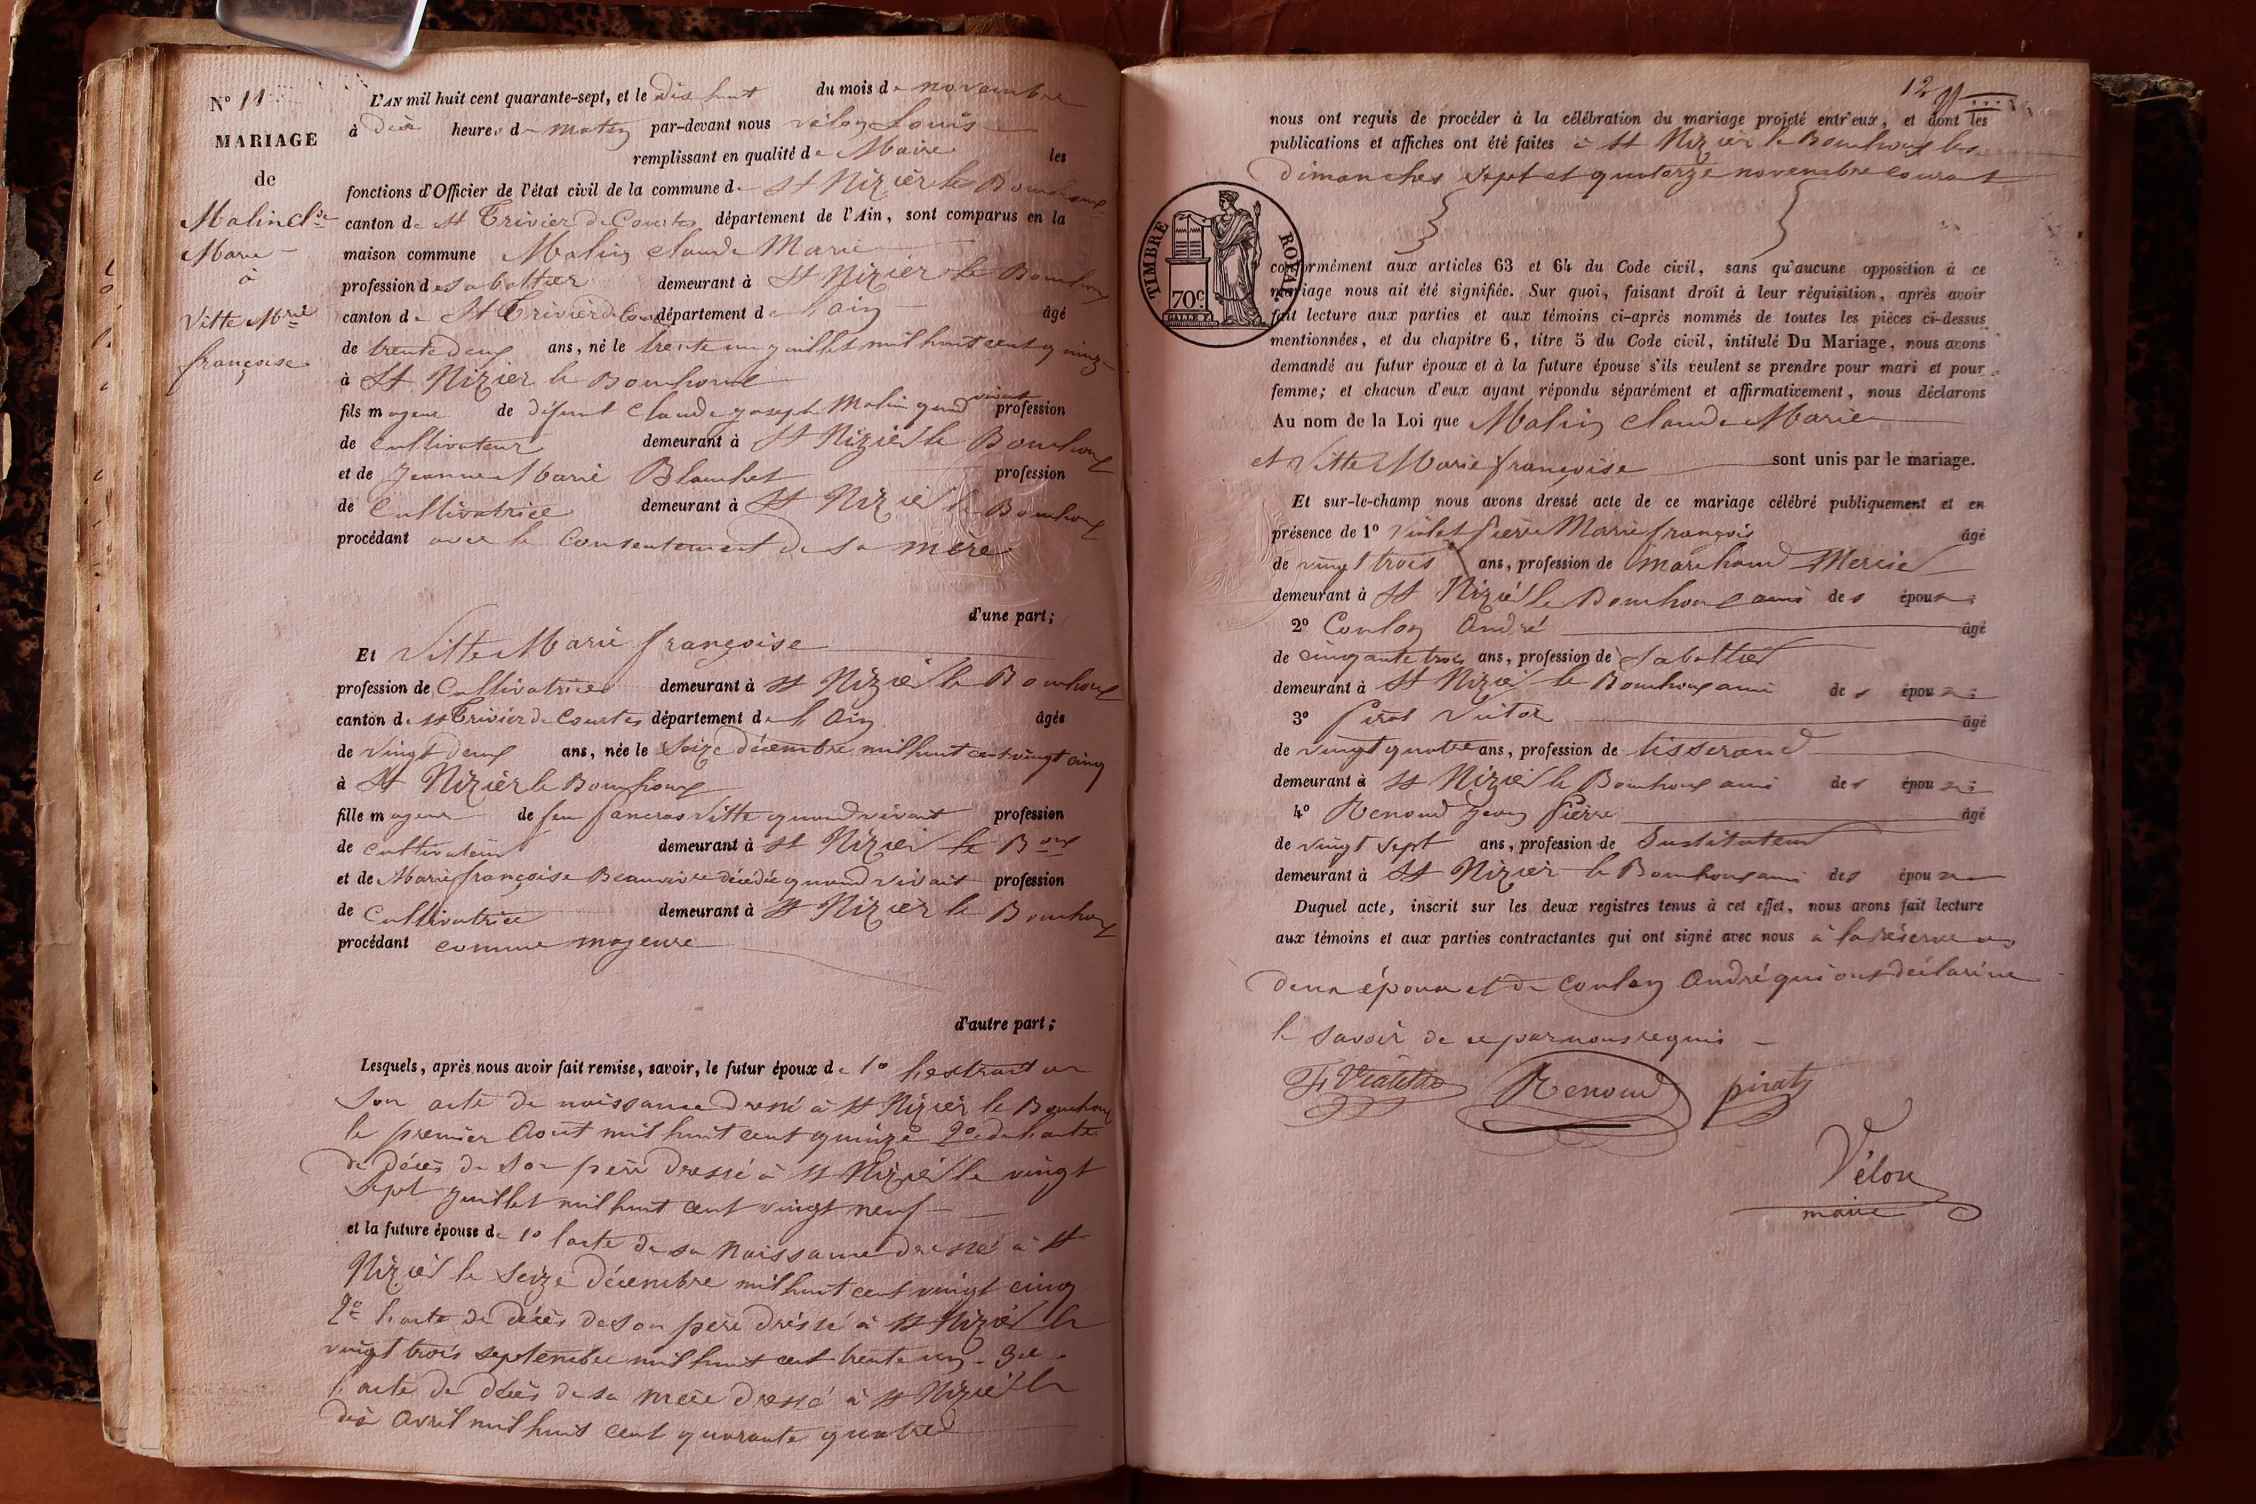 N° 11
MARIAGE
de
Malin Cl.de
Marie
à
Vitte M.rie
françoise
L'AN mil huit cent quarante-sept, et le dix huit du mois de novembre
à dix heures de matin par-devant nous vélon Louis
remplissant en qualité de Maire les
fonctions d'Officier de l'état civil de la commune de St Nizier le Bouchoux
canton de St Trivier de Courtes département de l'Ain, sont comparus en la
maison commune Malin claude Marie
profession de sabottier demeurant à St Nizier le Bouchoux
canton de St Trivier de Courtes département de l'ain âgé
de trente deux ans, né le trente un juillet mil huit cent quinze
à St Nizier le Bouchoux
fils majeur de défunt Claude joseph Malin quand vivant profession
de cultivateur demeurant à St Nizier le Bouchoux
et de jeanne Marie Blanchet profession
de Cultivatrice demeurant à St Nizier le Bouchoux
procédant avec le Consentement de sa mère
d'une part;
Et Vitte Marie françoise
profession de Cultivatrice demeurant à St Nizier le Bouchoux
canton de St Trivier de Courtes département de l'Ain âgée
de vingt deux ans, née le Seize décembre mil huit cent vingt cinq
à St Nizier le Bouchoux
fille majeure de feu pancras Vitte quand vivant profession
de cultivateur demeurant à St Nizier le Boux
et de Marie françoise Beauvivre décédée quand vivait profession
de Cultivatrice demeurant à St Nizier le Bouchoux
procédant comme majeure
d'autre part;
Lesquels, après nous avoir fait remise, savoir, le futur époux de 1° l'extrait de
Son acte de naissance dressé à St Nizier le Bouchoux
le premier Aout mil huit cent quinze 2° de l'acte
de décès de son père dressé à St Nizier le vingt
sept juillet mil huit cent vingt neuf
et la future épouse de 1° l'acte de sa Naissance dressé à St
Nizier le Seize décembre mil huit cent vingt cinq
2° l'acte de décès de son père dressé à St Nizier le
vingt trois septembre mil huit cent trente un. 3°
l'acte de décès de sa mère dressé à St Nizier le
dix Avril mil huit cent quarante quatre
12
nous ont requis de procéder à la célébration du mariage projeté entr'eux, et dont les
publications et affiches ont été faites à St Nizier le Bouchoux les
dimanches sept et quatorze novembre courant
TIMBRE ROYAL
70c.
conformément aux articles 63 et 64 du Code civil, sans qu'aucune opposition à ce
mariage nous ait été signifiée. Sur quoi, faisant droit à leur réquisition, après avoir
fait lecture aux parties et aux témoins ci-après nommés de toutes les pièces ci-dessus
mentionnées, et du chapitre 6, titre 5 du Code civil, intitulé Du Mariage, nous avons
demandé au futur époux et à la future épouse s'ils veulent se prendre pour mari et pour
femme; et chacun d'eux ayant répondu séparément et affirmativement, nous déclarons
Au nom de la Loi que Malin Claude Marie
et Vitte Marie françoise sont unis par le mariage.
Et sur-le-champ nous avons dressé acte de ce mariage célébré publiquement et en
présence de 1° Violet pierre Marie françois âgé
de vingt trois ans, profession de marchand Mercier
demeurant à St Nizier le Bouchoux ami des époux;
2° Coulon André âgé
de cinquante trois ans, profession de Sabottier
demeurant à St Nizier le Bouchoux ami des époux;
3° pirat Victor âgé
de vingt quatre ans, profession de tisserand
demeurant à St Nizier le Bouchoux ami des époux;
4° Renoud Jean Pierre âgé
de vingt sept ans, profession de Instituteur
demeurant à St Nizier le Bouchoux ami des époux
Duquel acte, inscrit sur les deux registres tenus à cet effet, nous avons fait lecture
aux témoins et aux parties contractantes qui ont signé avec nous à la réserve des
deux époux et de Coulon André qui ont déclaré ne
le savoir de ce par nous requis
Renoud
pirat
Vélon
maire